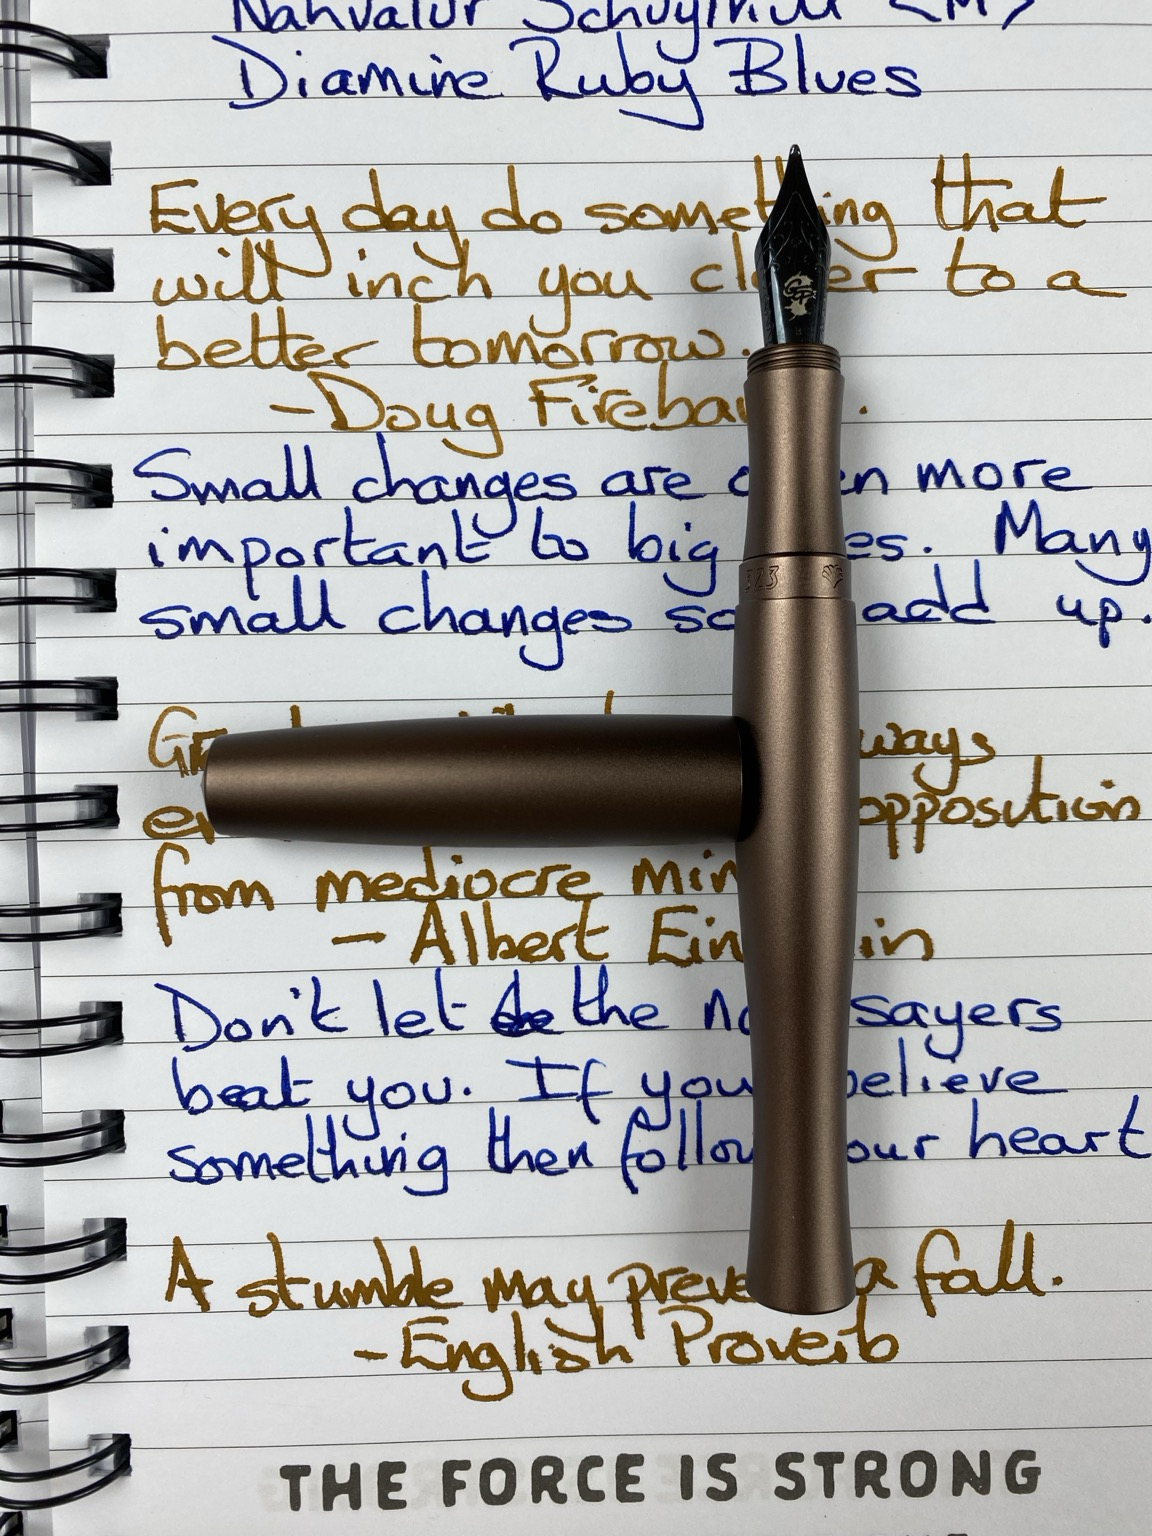 Diamine Ruby Blues
Every day do something that
will inch you closer to a
better tomorrow.
-Doug
Small changes are often more
important to big Many
small changes add up.
ways
opposition
from mediocre
- Albert Einstein
Don't let the sayers
beat you. If you believe
something then follow your heart
A stumble may prevent a fall.
-English Proverb
323
THE FORCE IS STRONG